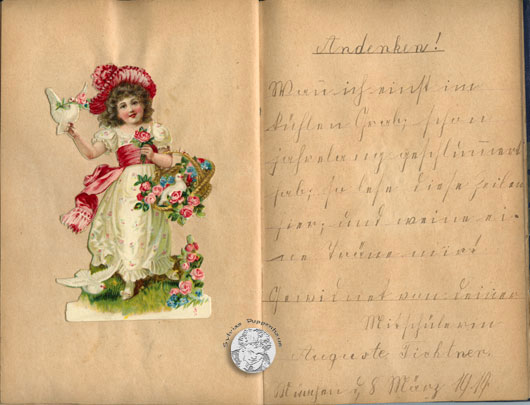 Andenken!
Wan ich einst im
kühlen Grab, schon
jahrelang geschlümmert
hab; so lese diese zeilen
hier, und weine ei-
ne Träne mir.
Gewidmet von deiner
Mitschülerin
Auguste Fichtner.
München d, 8 März
Sylvias Puppenheim